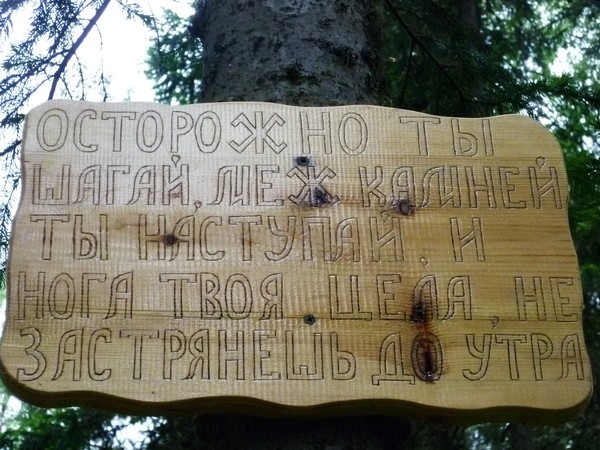 ОСТОРОЖНО ТЫ
ШАГАЙ, МЕЖ КАМНЕЙ
ТЫ НАСТУПАЙ, И
НОГА ТВОЯ ЦЕЛА, НЕ
ЗАСТРЯНЕШЬ ДО УТРА